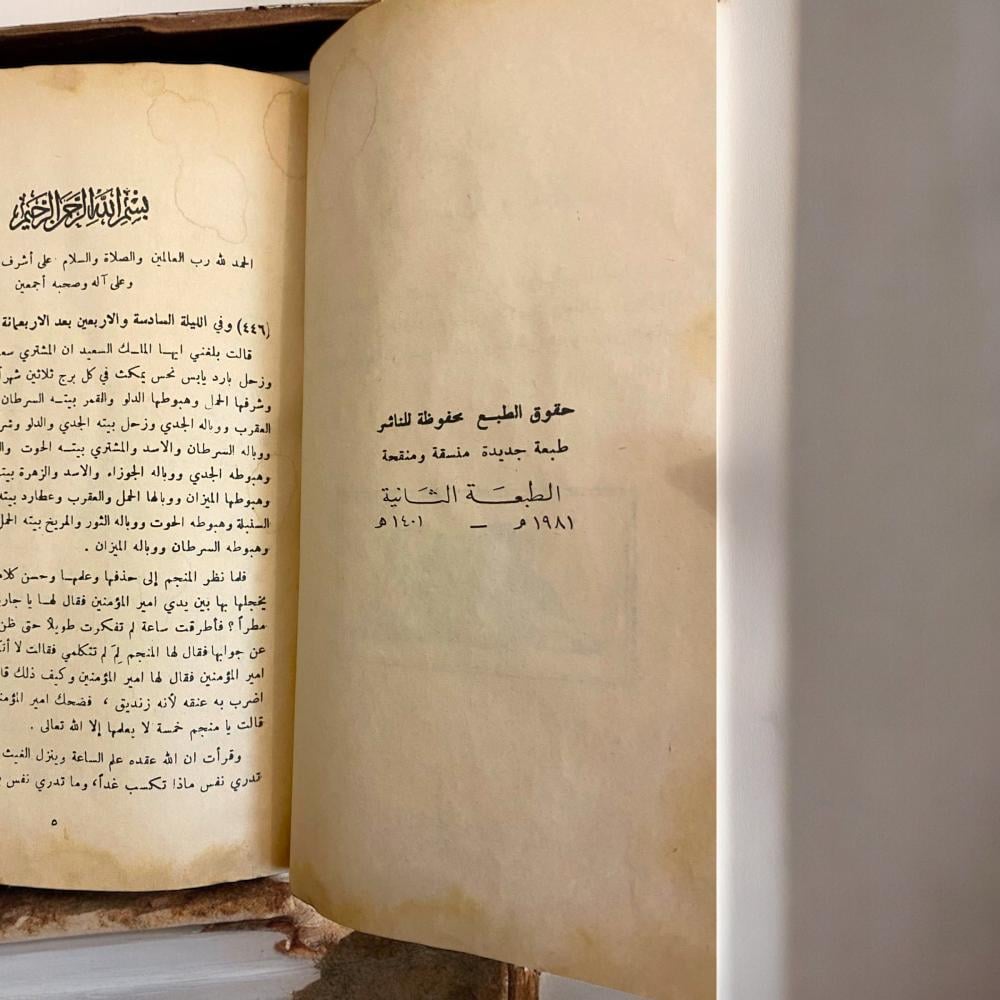 حقوق الطبع محفوظة للناشر
طبعة جديدة منسقة ومنقحة
الطبعة الثانية
١٩٨١ م — ١٤٠١ هـ
بسم الله الرحمن الرحيم
الحمد لله رب العالمين والصلاة والسلام على أشرف
وعلى آله وصحبه أجمعين
(٤٤٦) وفي الليلة السادسة والاربعين بعد الاربعمائة
قالت بلغني ايها الملك السعيد ان المشتري
وزحل بارد يابس نحس يمكث في كل برج ثلاثين شهراً
وشرفها الحمل وهبوطها الدلو والقمر بيته السرطان
العقرب ووباله الجدي وزحل بيته الجدي والدلو
ووباله السرطان والاسد والمشتري بيته الحوت
وهبوطه الجدي ووباله الجوزاء والاسد والزهرة
وهبوطها الميزان ووبالها الحمل والعقرب وعطارد
السنبلة وهبوطه الحوت ووباله الثور والمريخ بيته
وهبوطه السرطان ووباله الميزان .
فلما نظر المنجم إلى حذفها وعلمها وحسن
يخجلها بها بين يدي امير المؤمنين فقال لها يا
مطراً ؟ فأطرقت ساعة لم تفكرت طويلاً حتى ظن
عن جوابها فقال لها المنجم لِمَ لم تتكلمي فقالت لا
امير المؤمنين فقال لها امير المؤمنين وكيف ذلك
اضرب به عنقه لأنه زنديق ، فضحك امير
قالت يا منجم خمسة لا يعلمها إلا الله تعالى .
وقرأت ان الله عقده علم الساعة وينزل الغيث
تدري نفس ماذا تكسب غداً، وما تدري نفس
٥